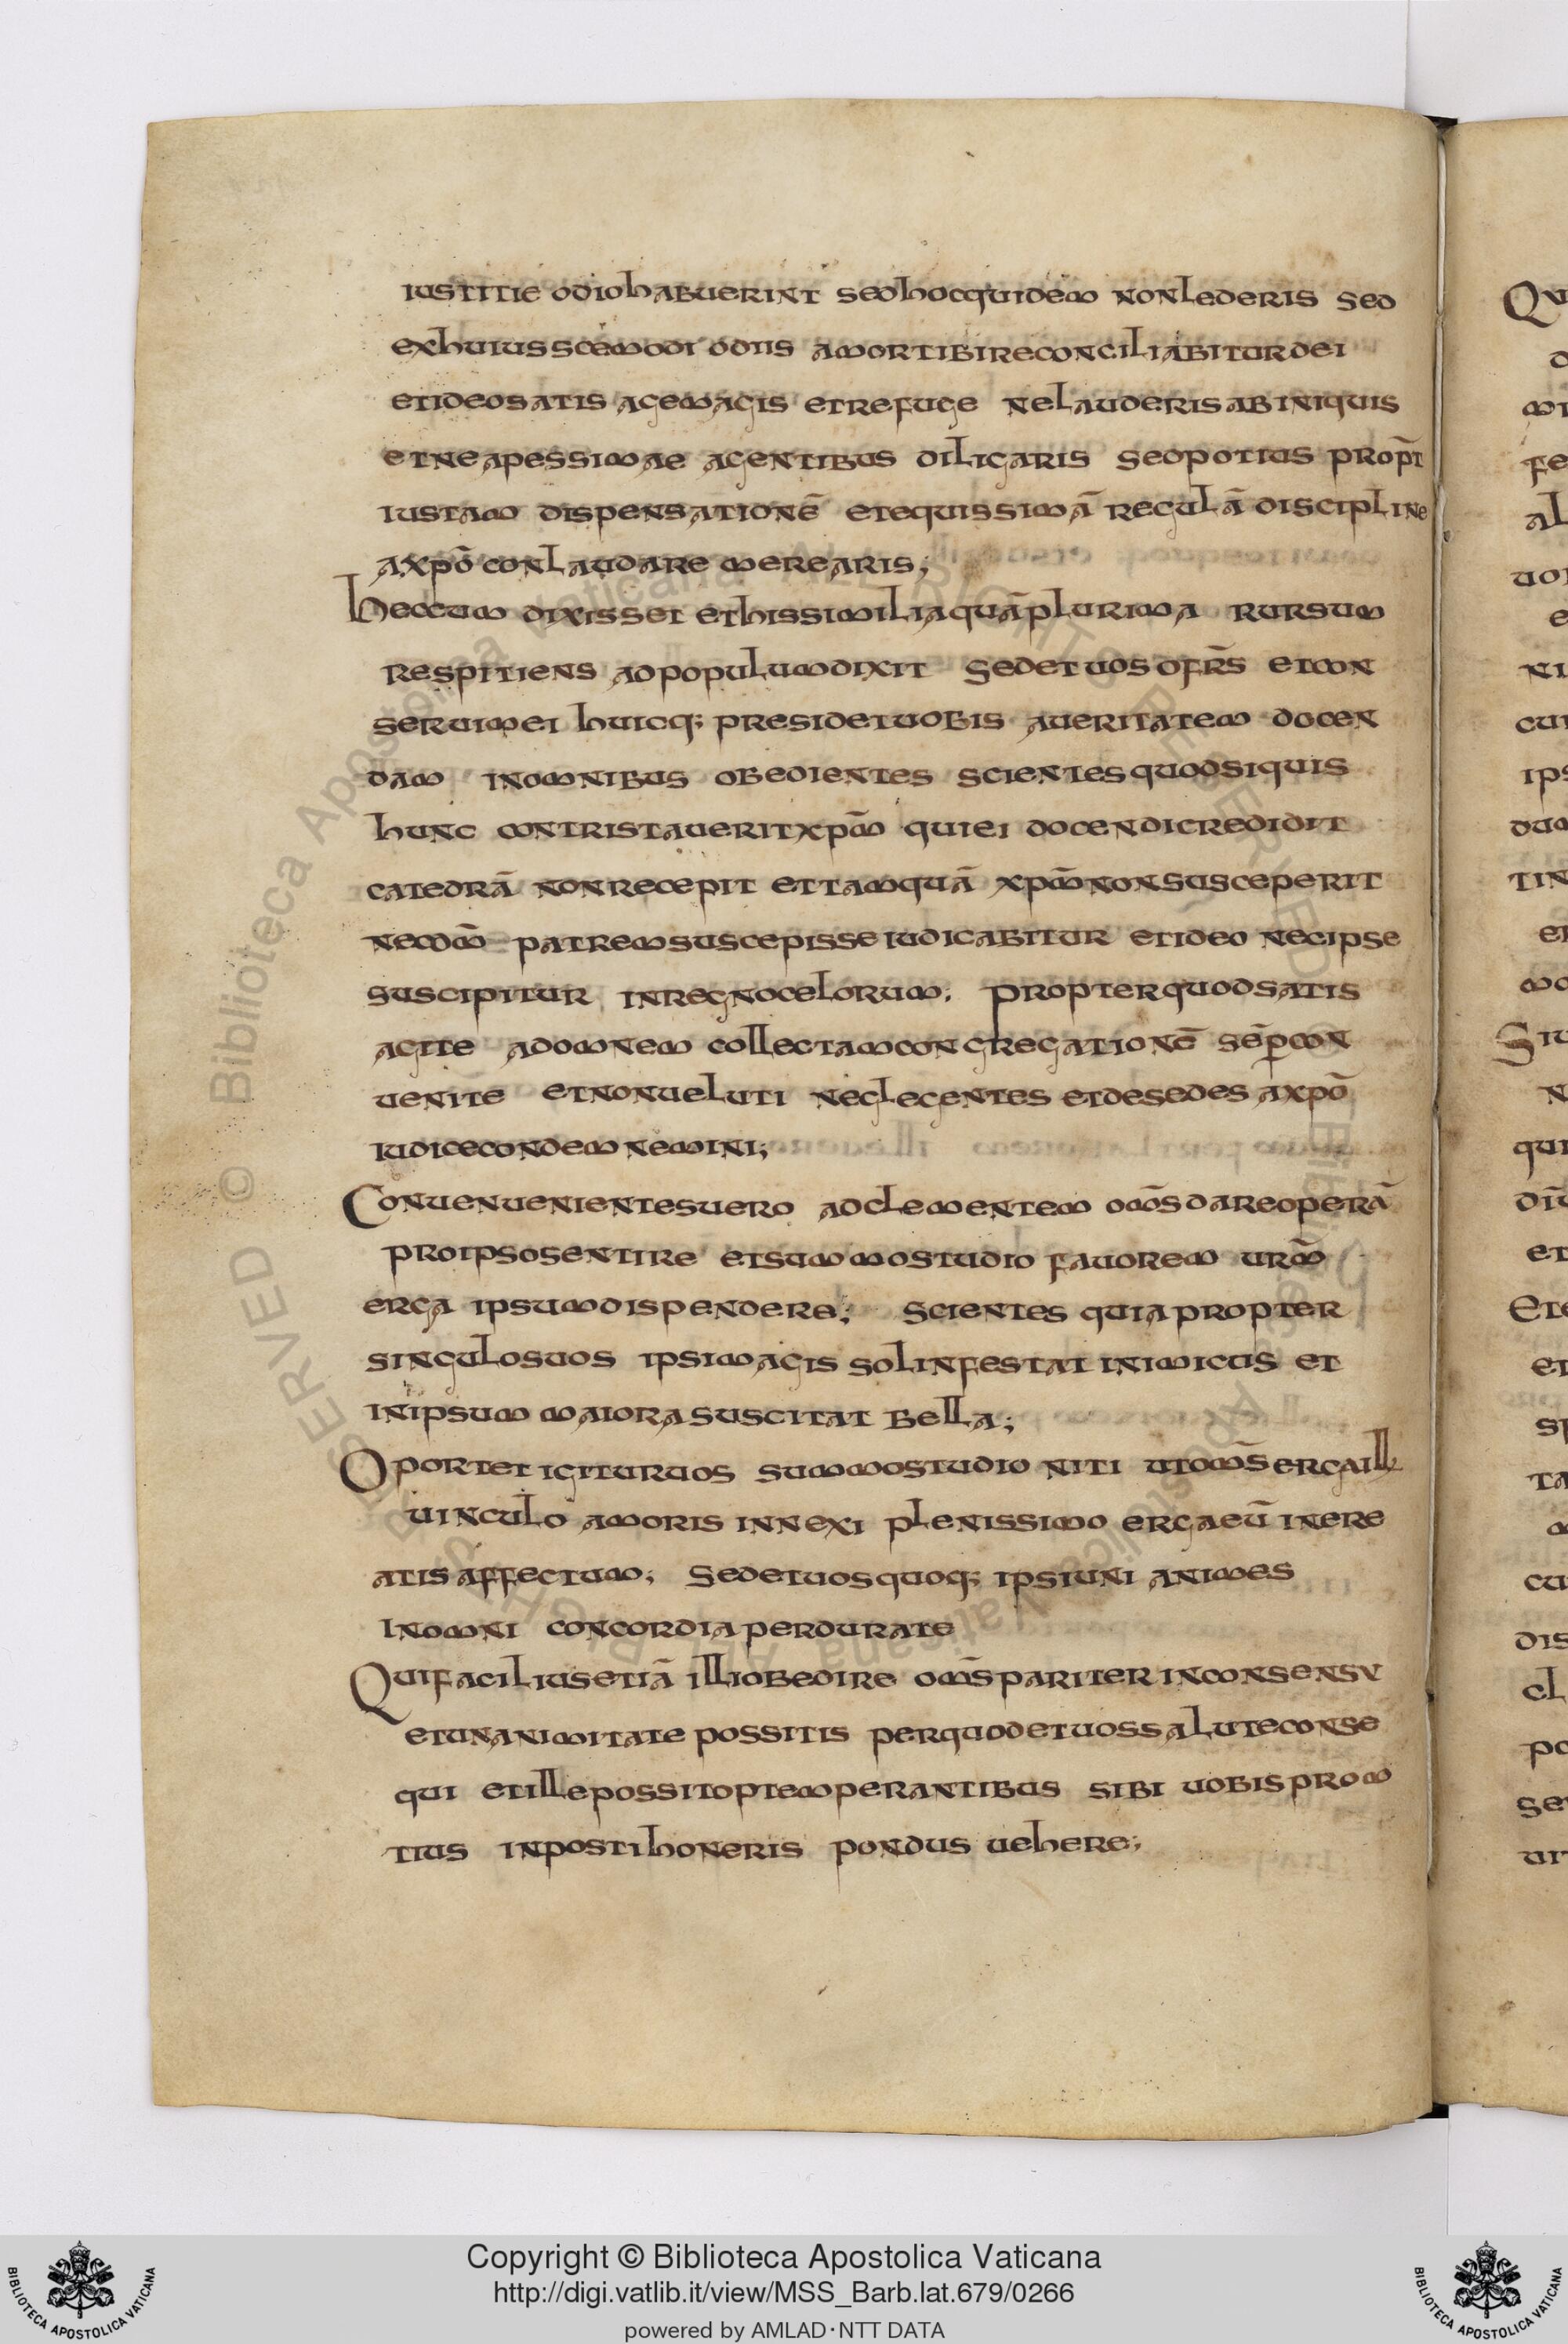 iustitie odio habuerint sed hoc quidem non lederis sed
ex huiusscemodi odiis amor tibi reconciliabitur dei
et ideo satis age magis et refuge ne lauderis ab iniquis
et ne a pessimae agentibus diligaris sed potius propt̄
iustam dispensationē et equissimā regulā discipline
a xpō conlaudare merearis;
Hec cum dixisset et his similia quā plurima rursum
respitiens ad populum dixit Sed et uos o frs̄ et con
serui mei huicq; presidet uobis a ueritatem docen
dam in omnibus obedientes scientes quod si quis
hunc contristauerit xpm̄ qui ei docendi credidit
catedrā non recepit et tamquā xpm̄ non susceperit
nec dm̄ patrem suscepisse iudicabitur et ideo nec ipse
suscipitur in regno celorum; Propter quod satis
agite ad omnem collectam congregationē sēp con
uenite et non ueluti neglegentes et desedes a xpō
iudice condemnemini;
Conuenuenientes uero ad clementem om̄s dare operā
pro ipso sentire et summo studio fauorem urm̄
erga ipsum dispendere; Scientes quia propter
singulos uos ipsi magis sol infestat inimicus et
in ipsum maiora suscitat bella;
Oportet igitur uos summo studio niti ut om̄s erga ill
uinculo amoris innexi plenissimo erga eū inere
atis affectum; Sed et uos quoq; ipsi uni animes
in omni concordia perdurate
Qui facilius etiā illi obedire om̄s pariter in consensu
et unanimitate possitis per quod et uos salute conse
qui et ille possit optemperantibus sibi uobis prom
tius inposti honeris pondus uehere;
Copyright © Biblioteca Apostolica Vaticana
http://digi.vatlib.it/view/MSS_Barb.lat.679/0266
powered by AMLAD·NTT DATA